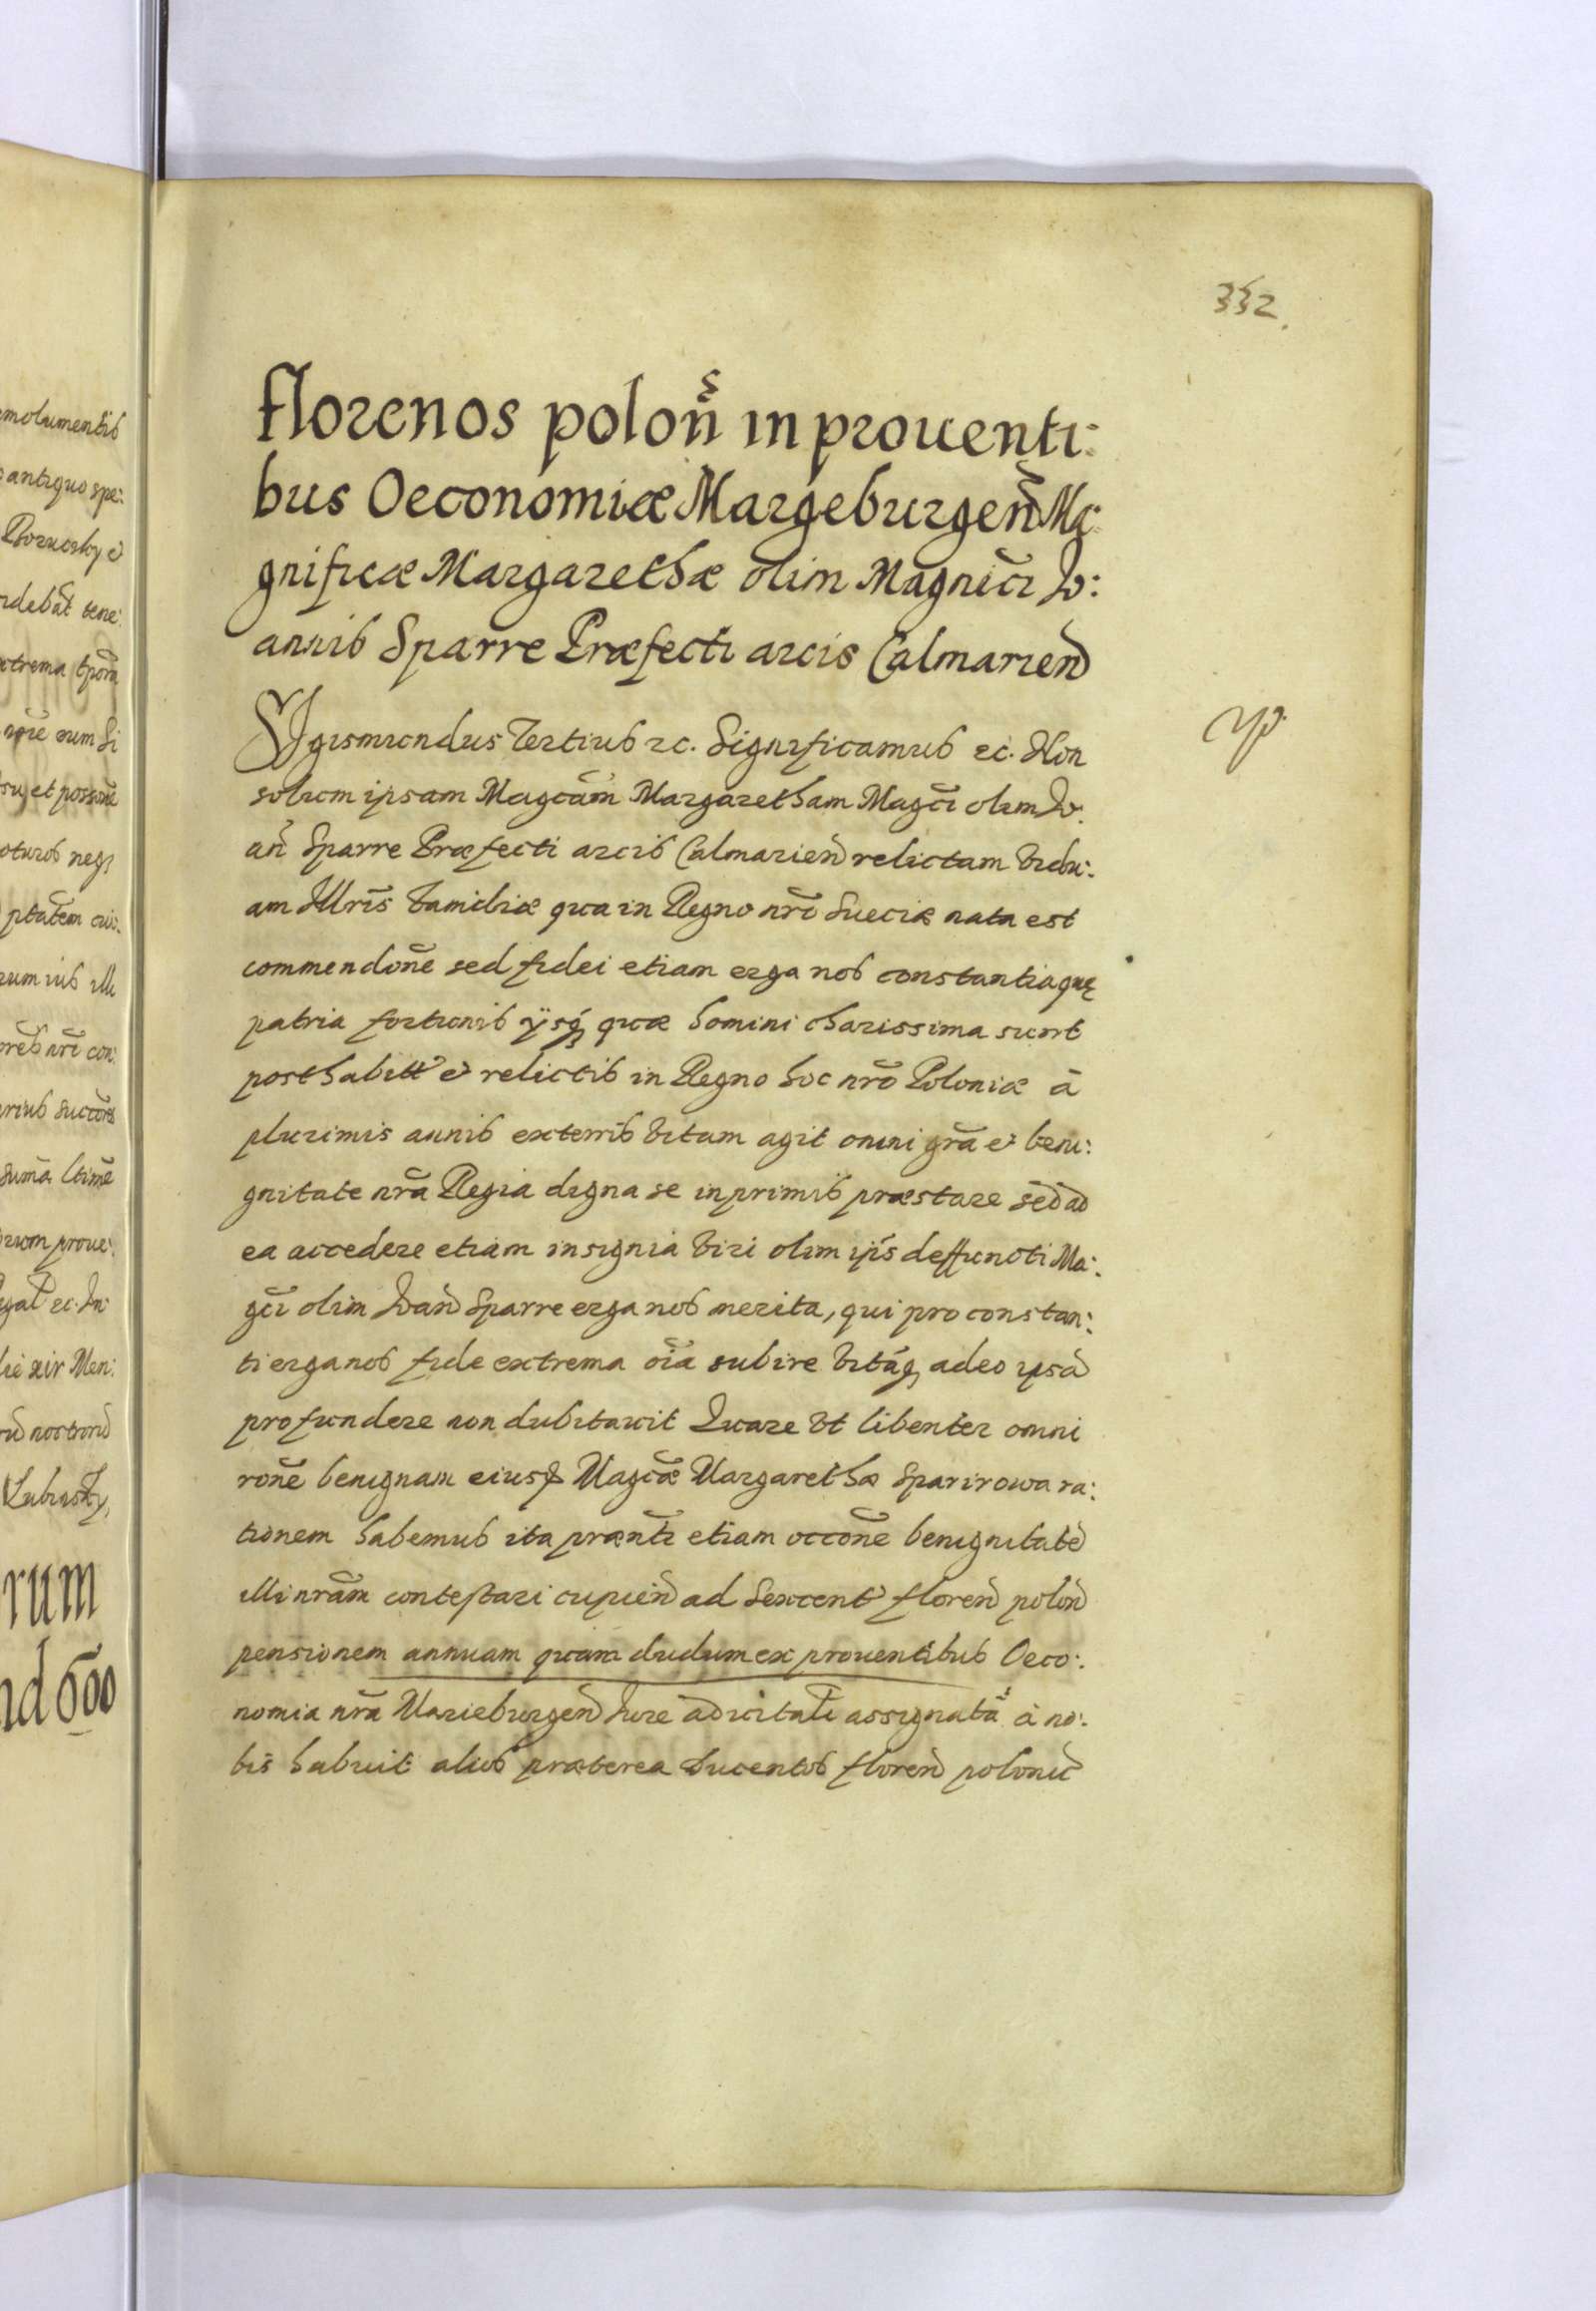 332.
florenos poloñ in prouenti:
bus Oeconomiæ Margeburgeñ Ma:
gnificæ Margarethæ olim Magnici Io:
annis Sparre Præfecti arcis Calmarien
Sigismundus Tertius ec. Significamus ec. Non
solum ipsam Magcam Margaretham Magci olim Io:
an Sparre Præfecti arcis Calmarien relictam vidu:
am Illris familiæ qua in Regno nro Sueciæ nata est
commendone sed fidei etiam erga nos constantiaque
patria fortunis ijsq quæ homini charissima sunt
posthabit et relictis in Regno hoc nro Poloniæ à
plurimis annis exterris vitam agit omni gra et beni:
gnitate nra Regia digna se inprimis præstare sed ad
ea accedere etiam insignia viri olim ipis deffuncti Ma:
gci olim Ioan Sparre erga nos merita, qui pro constan:
ti erga nos fide extrema oia subire vitaq adeo ipsa
profundere non dubitauit Quare vt libenter omni
rone benignam eiusd Magcæ Margarethæ Sparirowa ra:
tionem habemus ita prænti etiam occone benignitate
illi nram contestari cupien ad sexcent floren polon
pensionem annuam quam dudum ex prouentibus Oeco:
nomia nra Marieburgen Iure aduitali assignata à no:
bis habuit alios præterea ducentos floren polonic
emolumentis
antiquo spe:
debat tene:
extrema tpora
eum si
et possone
ptatem
rum ius illi
nri con:
succores
suma
proue:
ec. In:
Men:
nostrorum
rum
600